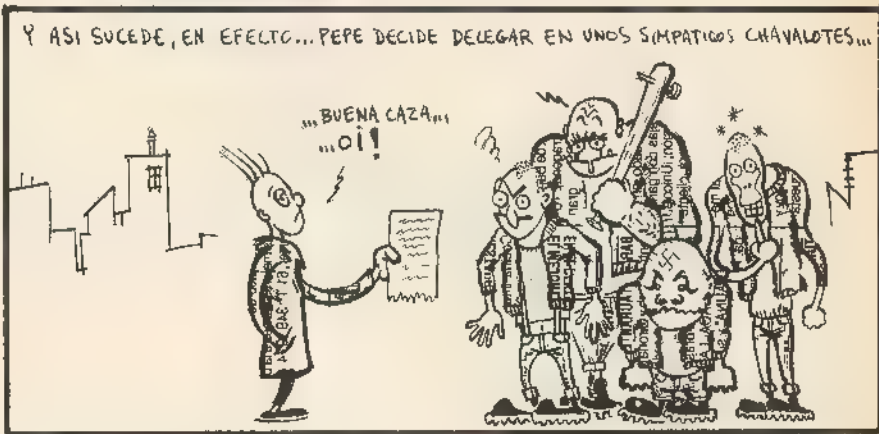 Y ASI SUCEDE, EN EFECTO... PEPE DECIDE DELEGAR EN UNOS SIMPATICOS CHAVALOTES...
... BUENA CAZA...
... OÏ!